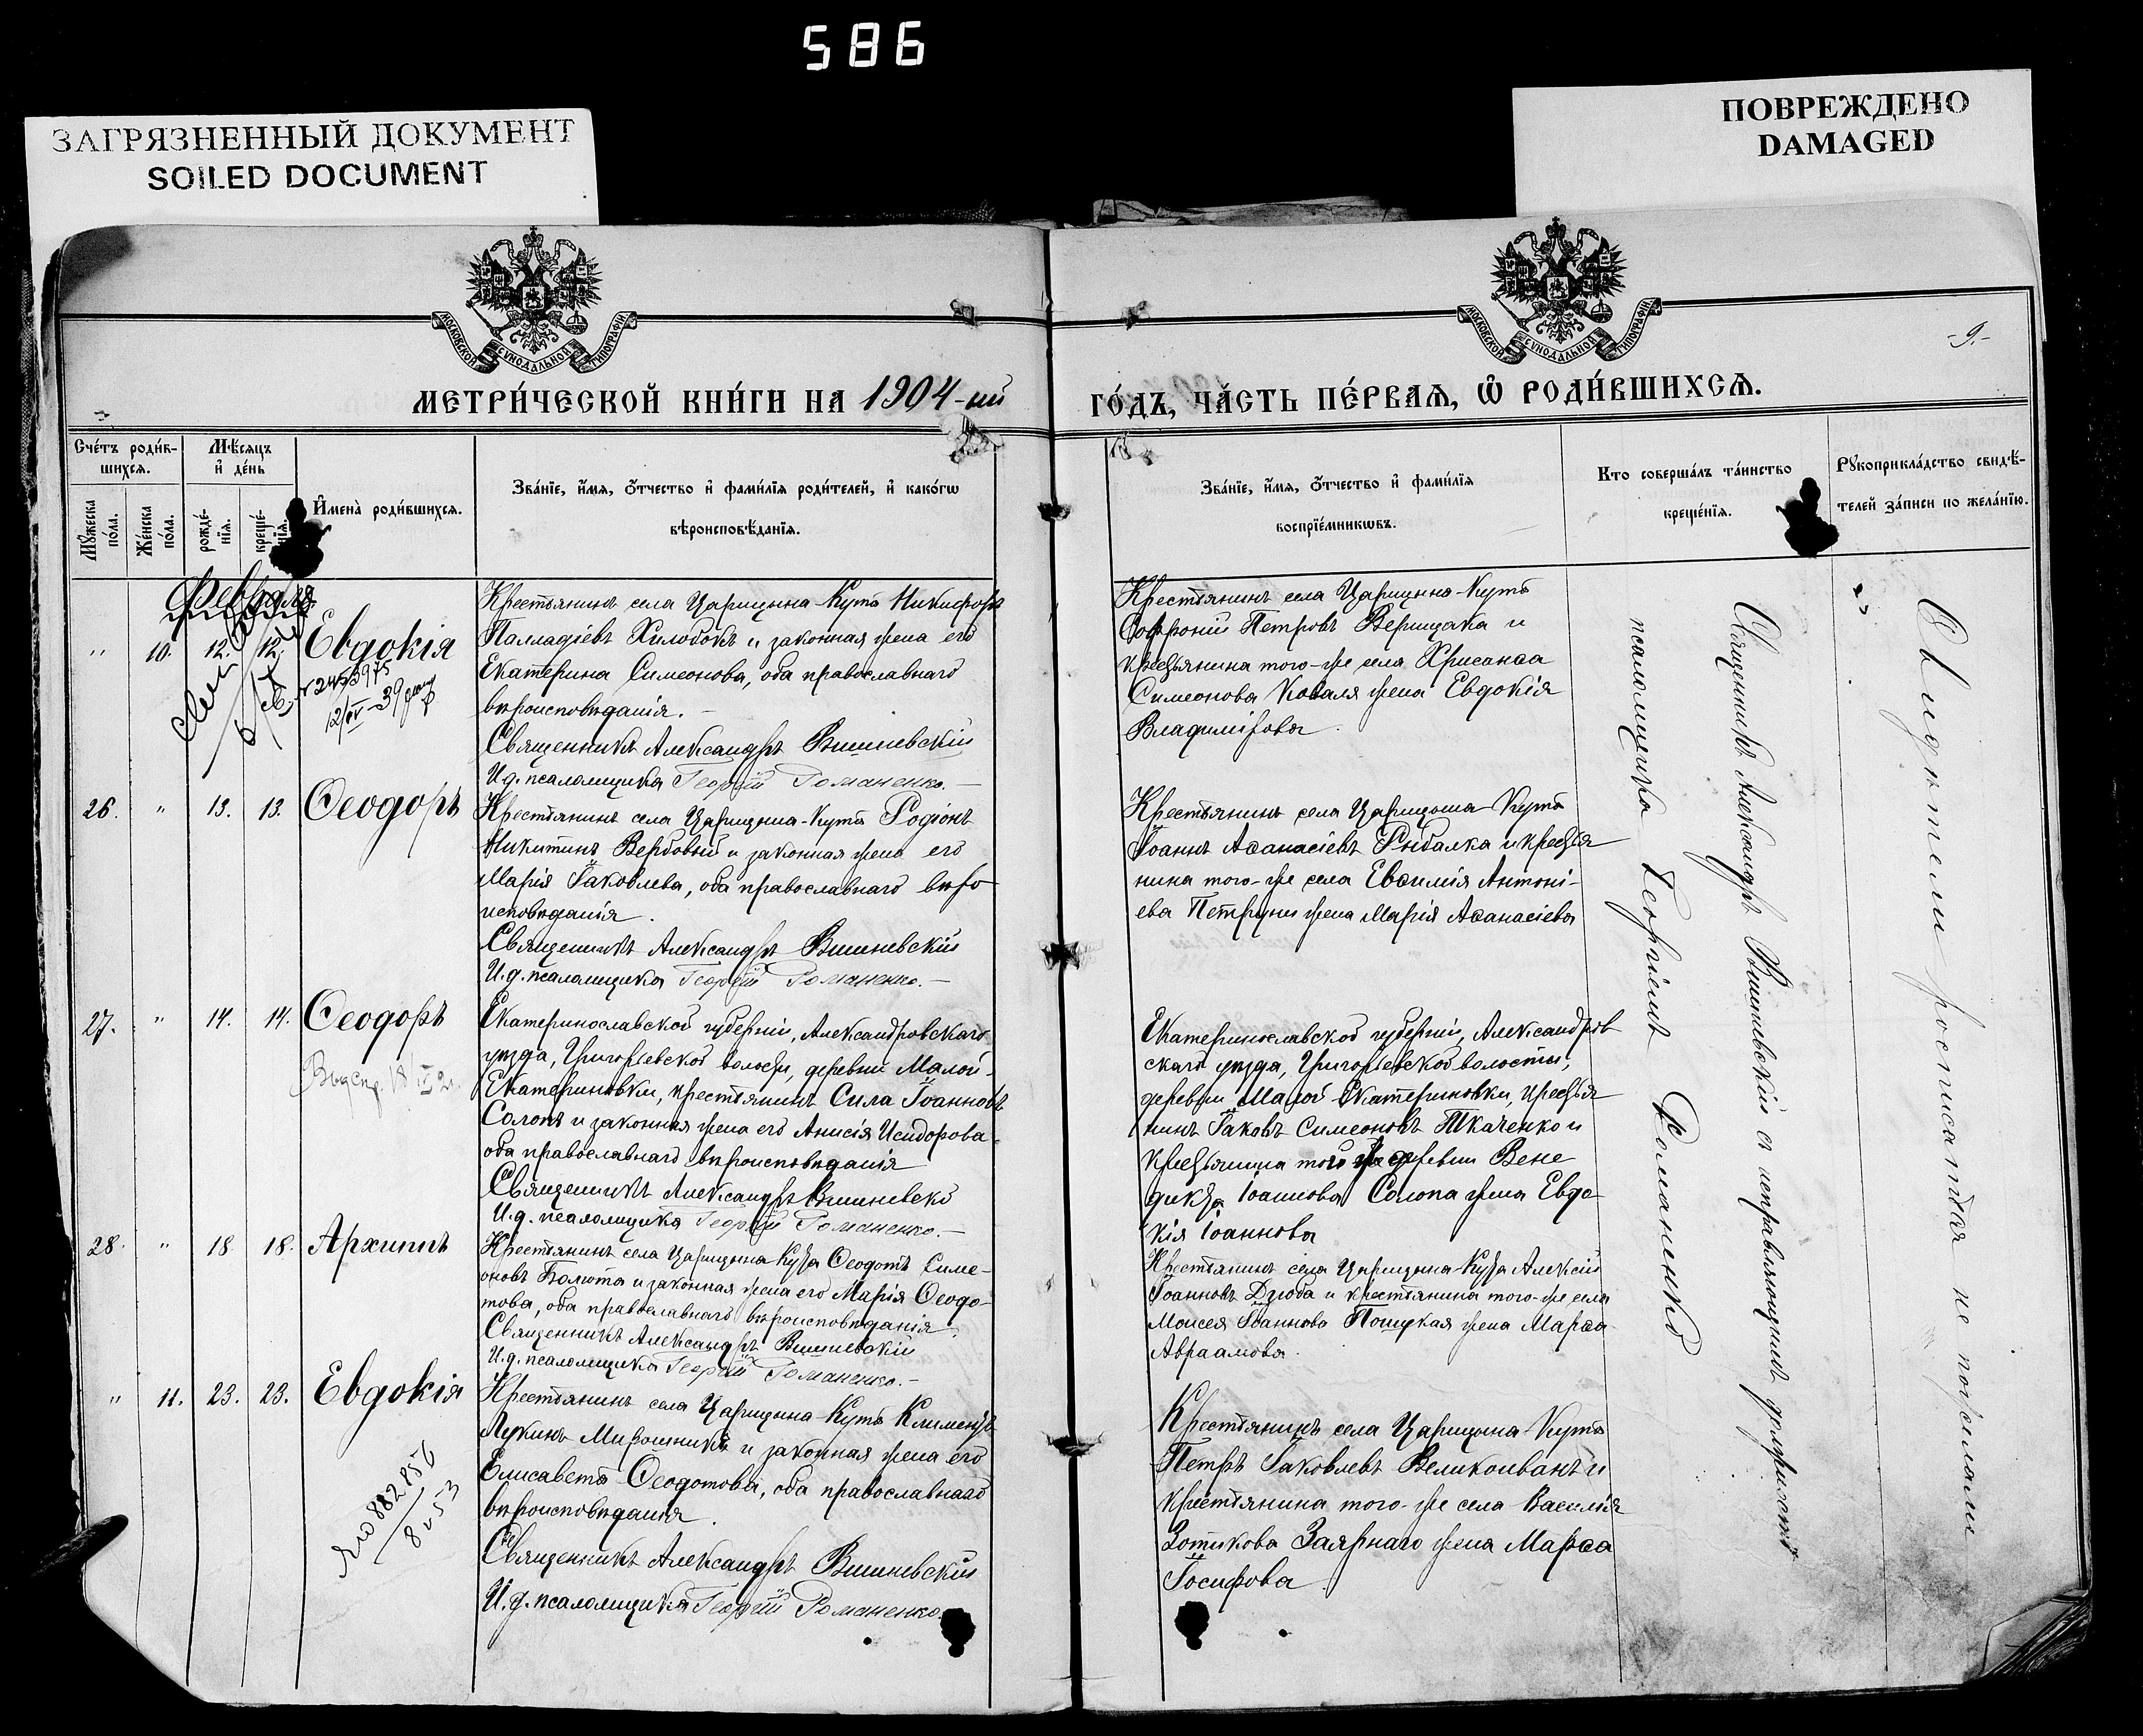 586
ЗАГРЯЗНЕННЫЙ ДОКУМЕНТ
SOILED DOCUMENT
ПОВРЕЖДЕНО
DAMAGED
МОСКОВСКОЙ СѴНОДАЛЬНОЙ ТИПОГРАФІИ
МОСКОВСКОЙ СѴНОДАЛЬНОЙ ТИПОГРАФІИ
-9.-
МЕТРИ́ЧЕСКОЙ КНИ́ГИ НА 1904-ый
ГО́ДЪ, ЧА́СТЬ ПЕ́РВАѦ, Ѽ РОДИ́ВШИХСѦ.
Сче́тъ роди́в-
шихсѧ.
Мꙋ́жеска
по́ла.
Же́нска
по́ла.
Мѣ́сѧцъ
и҆ де́нь
рожде́-
нїѧ.
креще́-
нїѧ.
И҆мена̀ роди́вшихсѧ.
Зва́нїе, и҆́мѧ, ѻ҆́тчество и҆ фами́лїѧ роди́телей, и҆ како́гѡ
вѣроисповѣ́данїѧ.
Зва́нїе, и҆́мѧ, ѻ҆́тчество и҆ фами́лїѧ
воспрїе́мникѡвъ.
Кто соверша́лъ та́инство
креще́нїѧ.
Рꙋкоприкла́дство свидѣ́-
телей за́писи по жела́нїю.
Февраля
" 10. 12. 12. Евдокія
Крестьянинъ села Царицына-Кута Никифоръ
Палладіевъ Хилобокъ и законная жена его
Екатерина Симеонова, оба православнаго
вѣроисповѣданія.
Священникъ Александръ Вишневскій
И.д. псаломщика Георгій Романенко.
Крестьянинъ села Царицына-Кута
Софроній Петровъ Верещака и
крестьянина того-же села Хрисанѳа
Симеонова Коваля жена Евдокія
Владимірова
26. " 13. 13. Ѳеодоръ
Крестьянинъ села Царицына-Кута Родіонъ
Никитинъ Вербовый и законная жена его
Марія Іаковлева, оба православнаго вѣро
исповѣданія.
Священникъ Александръ Вишневскій
И.д. псаломщика Георгій Романенко.
Крестьянинъ села Царицына-Кута
Іоаннъ Аѳанасіевъ Рыбалка и крестья
нина того-же села Евѳимія Антоні-
ева Петруни жена Марія Аѳанасіева
27. " 14. 14. Ѳеодоръ
Екатеринославской губерніи, Александровскаго
уѣзда, Григорьевской волости, деревни Малой-
Екатериновки, крестьянинъ Сила Іоанновъ
Солопъ и законная жена его Анисія Исидорова
оба православнаго вѣроисповѣданія
Священникъ Александръ Вишневскій
И.д. псаломщика Георгій Романенко.
Екатеринославской губерніи, Александров
скаго уѣзда, Григорьевской волости,
деревни Малой-Екатериновки, крестья
нинъ Іаковъ Симеоновъ Ткаченко и
крестьянина той же деревни Вене
дикта Іоаннова Солопа жена Евдо
кія Іоаннова
28. " 18 18. Архиппъ
Крестьянинъ села Царицына Кута Ѳеодотъ Симе-
оновъ Болюта и законная жена его Марія Ѳеодо-
това, оба православнаго вѣроисповѣданія.
Священникъ Александръ Вишневскій
И.д. псаломщика Георгій Романенко.
Крестьянинъ села Царицына-Кута Алексій
Іоанновъ Дзюба и крестьянина того-же села
Моисея Іоаннова жена Марѳа
Авраамова.
" 11. 23. 23. Евдокія
Крестьянинъ села Царицына-Кута Климентъ
Лукинъ Мирошникъ и законная жена его
Елисавета Ѳеодотова, оба православнаго
вѣроисповѣданія.
Священникъ Александръ Вишневскій
И.д. псаломщика Георгій Романенко.
Крестьянинъ села Царицына-Кута
Петръ Іаковлевъ Великоиванъ и
крестьянина того-же села Василія
Зотикова Заярнаго жена Марѳа
Іосифова
Священникъ Александръ Вишневскій съ исправляющимъ должность
псаломщика Георгіемъ Романенко
Свидѣтели росписаться не пожелали